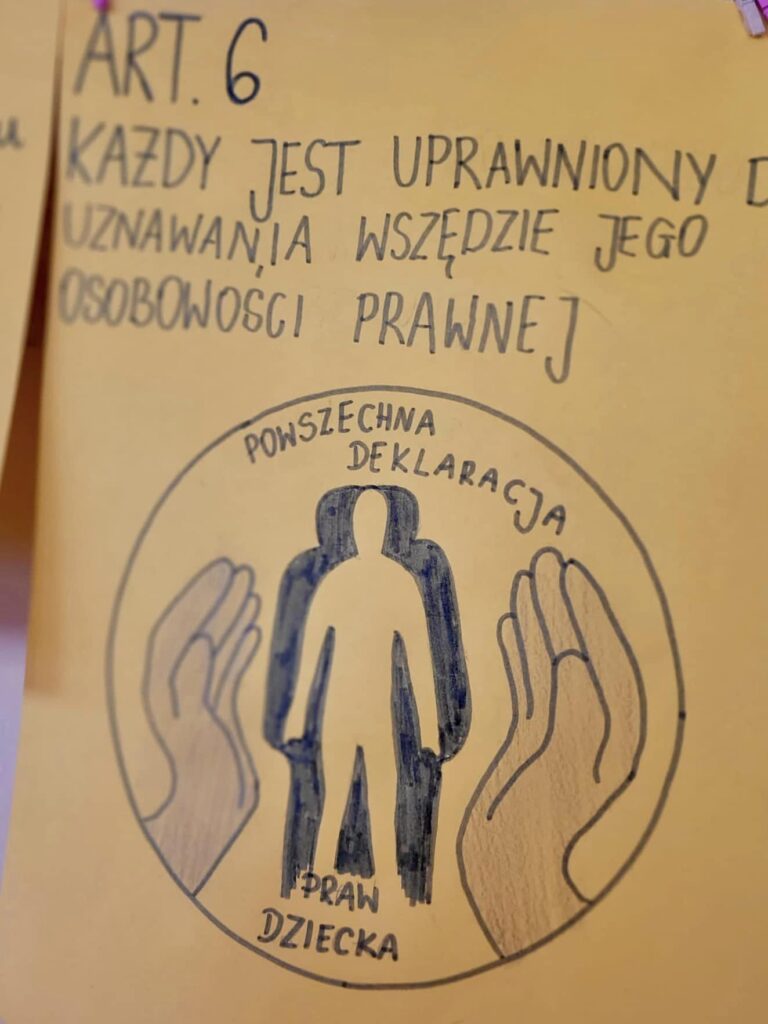 ART. 6
KAŻDY JEST UPRAWNIONY D
UZNAWANIA WSZĘDZIE JEGO
OSOBOWOŚCI PRAWNEJ
POWSZECHNA
DEKLARACJA
PRAW
DZIECKA